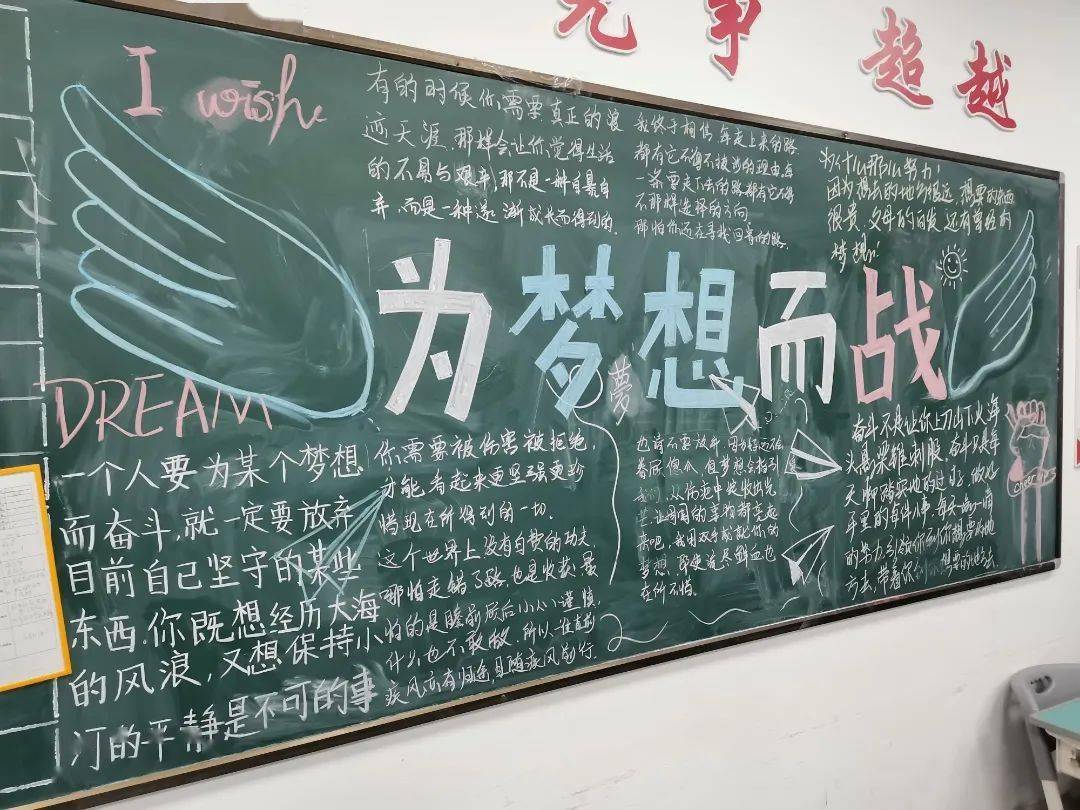 竞 争 超越
I wish
有的时候你需要真正的浪
迹天涯,那样会让你觉得生活
的不易与艰辛,那不是一种自暴自
弃,而是一种逐渐成长而得到的.
我终于相信,每走上来的路
都有它不得不跋涉的理由每
一条要走下去的路都有它
不那样选择的方向
那怕你还在寻找回答的路.
为什么那么努力!
因为想去的地方很远,想要的东西
很贵,父母的白发,还有曾经的
梦想!
为梦想而战
DREAM
夢
一个人要为某个梦想
而奋斗,就一定要放弃
目前自己坚守的某些
东西,你既想经历大海
的风浪,又想保持小
汀的平静是不可的事
你需要被伤害被拒绝,
才能看起来更坚强更珍
惜现在所得到的一切.
这个世界上没有白费的功夫
哪怕走错了路,也是收获,最
怕的是瞻前顾后小心谨慎,
什么也不敢做 所以一往直前
疾风亦有归途,且随疾风前行.
也许不要放弃
但梦想会指引
我们,从伤疤中
来吧,我用双手成就你的
梦想,即使流尽鲜血也
在所不惜.
奋斗不是让你上刀山下火海
头悬梁锥刺股,奋斗只是每
天脚踏实地的过日子,做好
平里的每件小事,每天一点一滴
的努力引领你到你想要的地
方去,带着你到想要的地去.